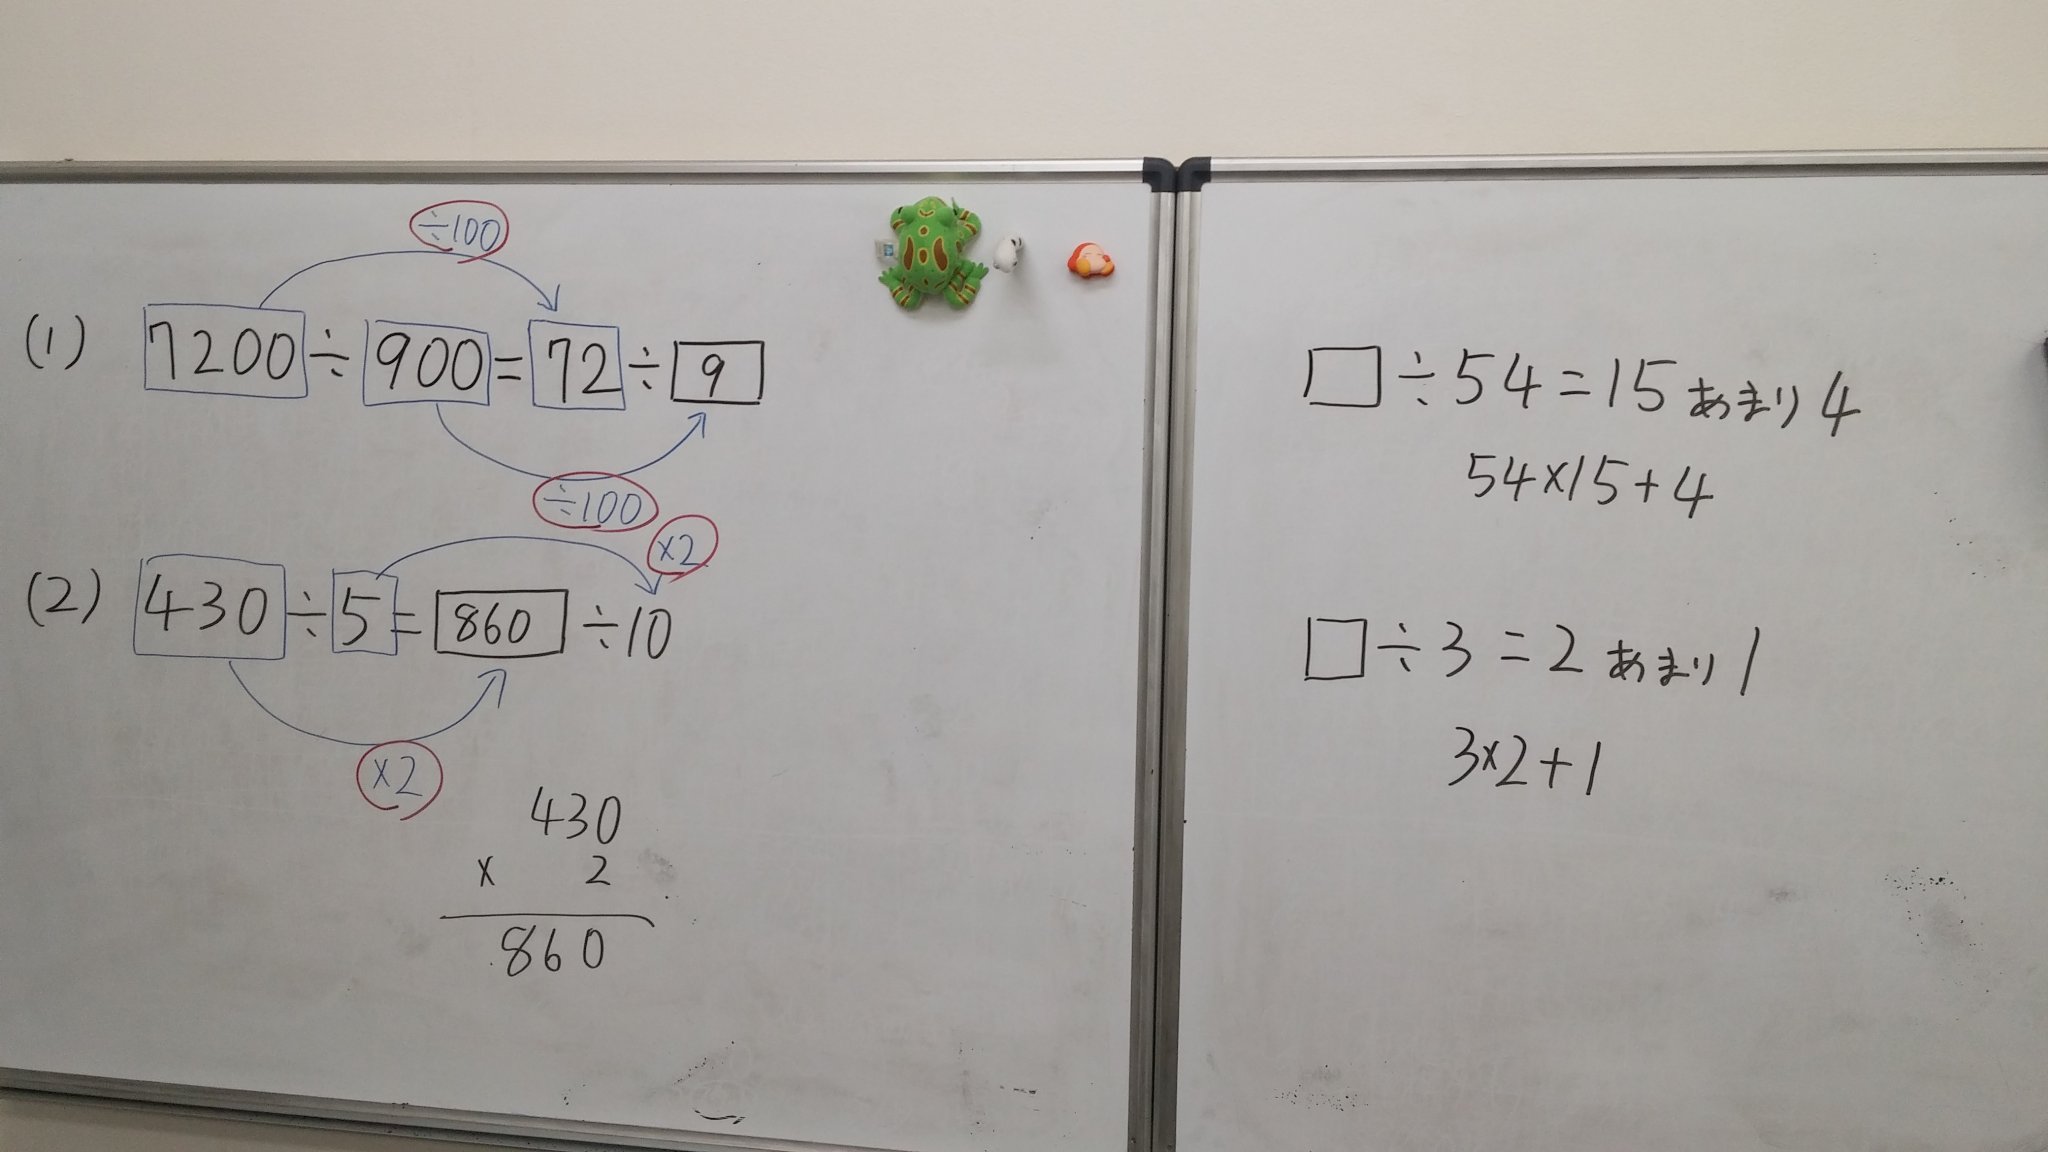 ÷100
(1) 7200÷900=72÷9
÷100
×2
(2) 430÷5=860÷10
×2
430
× 2
860
□÷54=15あまり4
54×15+4
□÷3=2あまり1
3×2+1